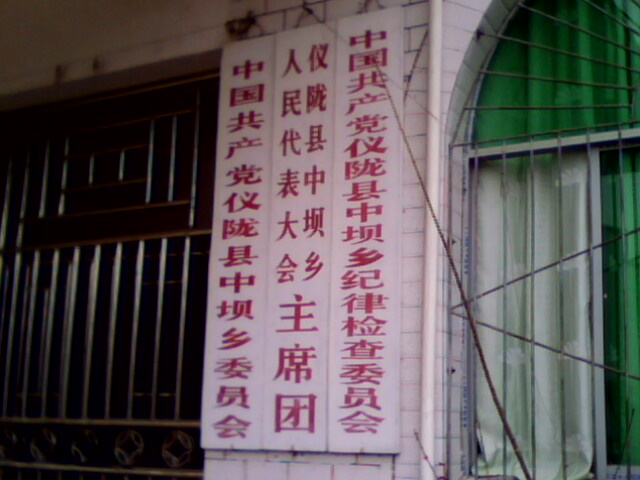 中国共产党仪陇县中坝乡纪律检查委员会
仪陇县中坝乡
人民代表大会
主席团
中国共产党仪陇县中坝乡委员会